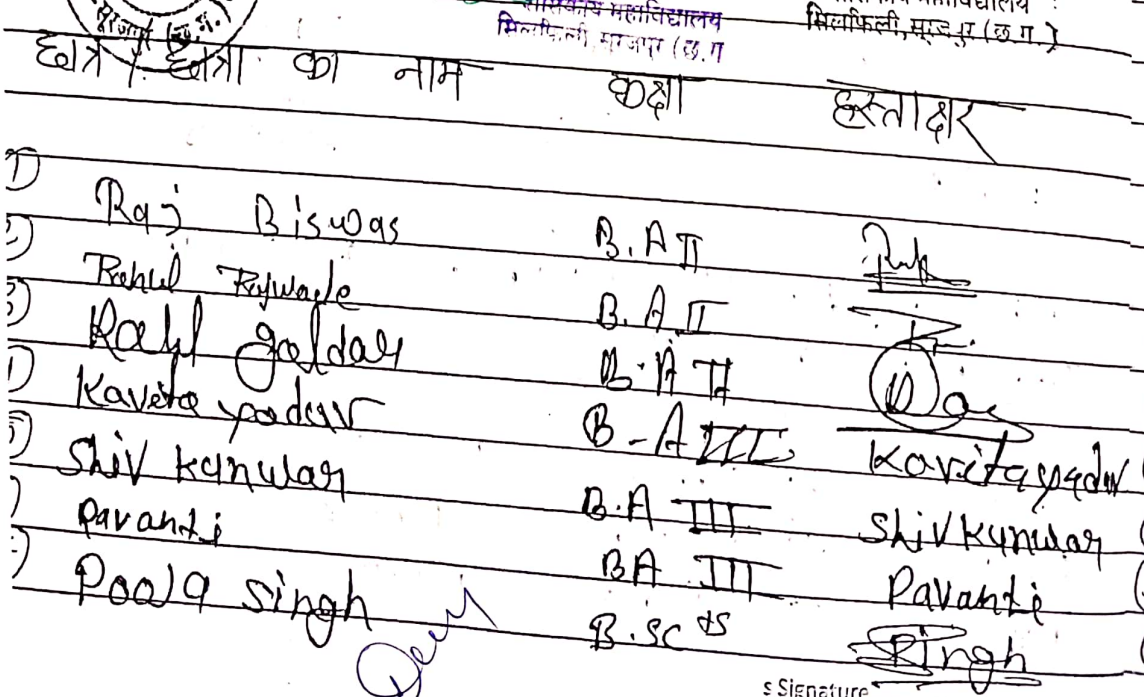 शासकीय महाविद्यालय
सिलफिली, सूरजपुर (छ.ग.
महाविद्यालय
सिलफिली, सूरजपुर (छ.ग.)
सूरजपुर (छ.ग.)
छात्र / छात्रा का नाम कक्षा हस्ताक्षर
① Raj Biswas B.A II
② Rahul Rajwade B.A II
③ Rahul goldar B.A II
④ Kavita yadav B-A III Kavita yadav
⑤ Shiv kunwar B.A III Shiv kunwar
Pavanti BA III Pavanti
Pooja singh B.sc Singh
s Signature